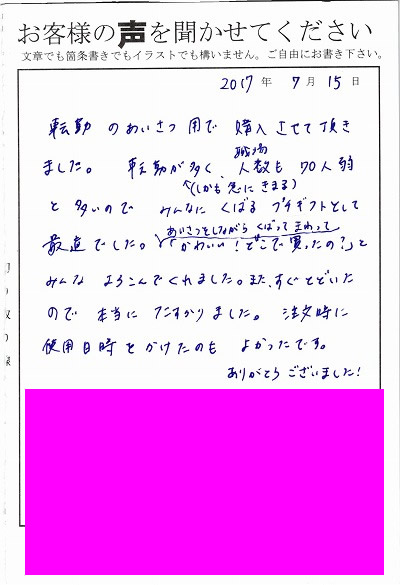 お客様の声を聞かせてください
文章でも箇条書きでもイラストでも構いません。ご自由にお書き下さい。
2017年 7月 15日
転勤 のあいさつ用で 購入させて頂き
ました。 転勤が多く、職場人数も 70人弱
(しかも急にきまる)
と 多いので みんなに くばる プチギフトとして
あいさつをしながら くばって まわって
最適でした。「かわいい!どこで買ったの?」と
みんな よろこんでくれました。また、すぐとどいた
ので 本当に たすかりました。 注文時に
使用日時を かけたのも よかったです。
ありがとうございました!